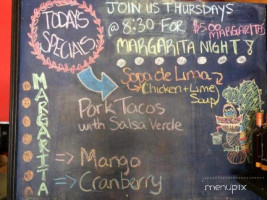 JOIN US THURSDAYS
@ 8:30 FOR $5.00 MARGARITAS
MARGARITA NIGHT
TODAYS
SPECIALS
Sopa de Lima
Chicken + Lime
Soup
Pork Tacos
with Salsa Verde
MARGARITA
=> Mango
=> Cranberry
menupix